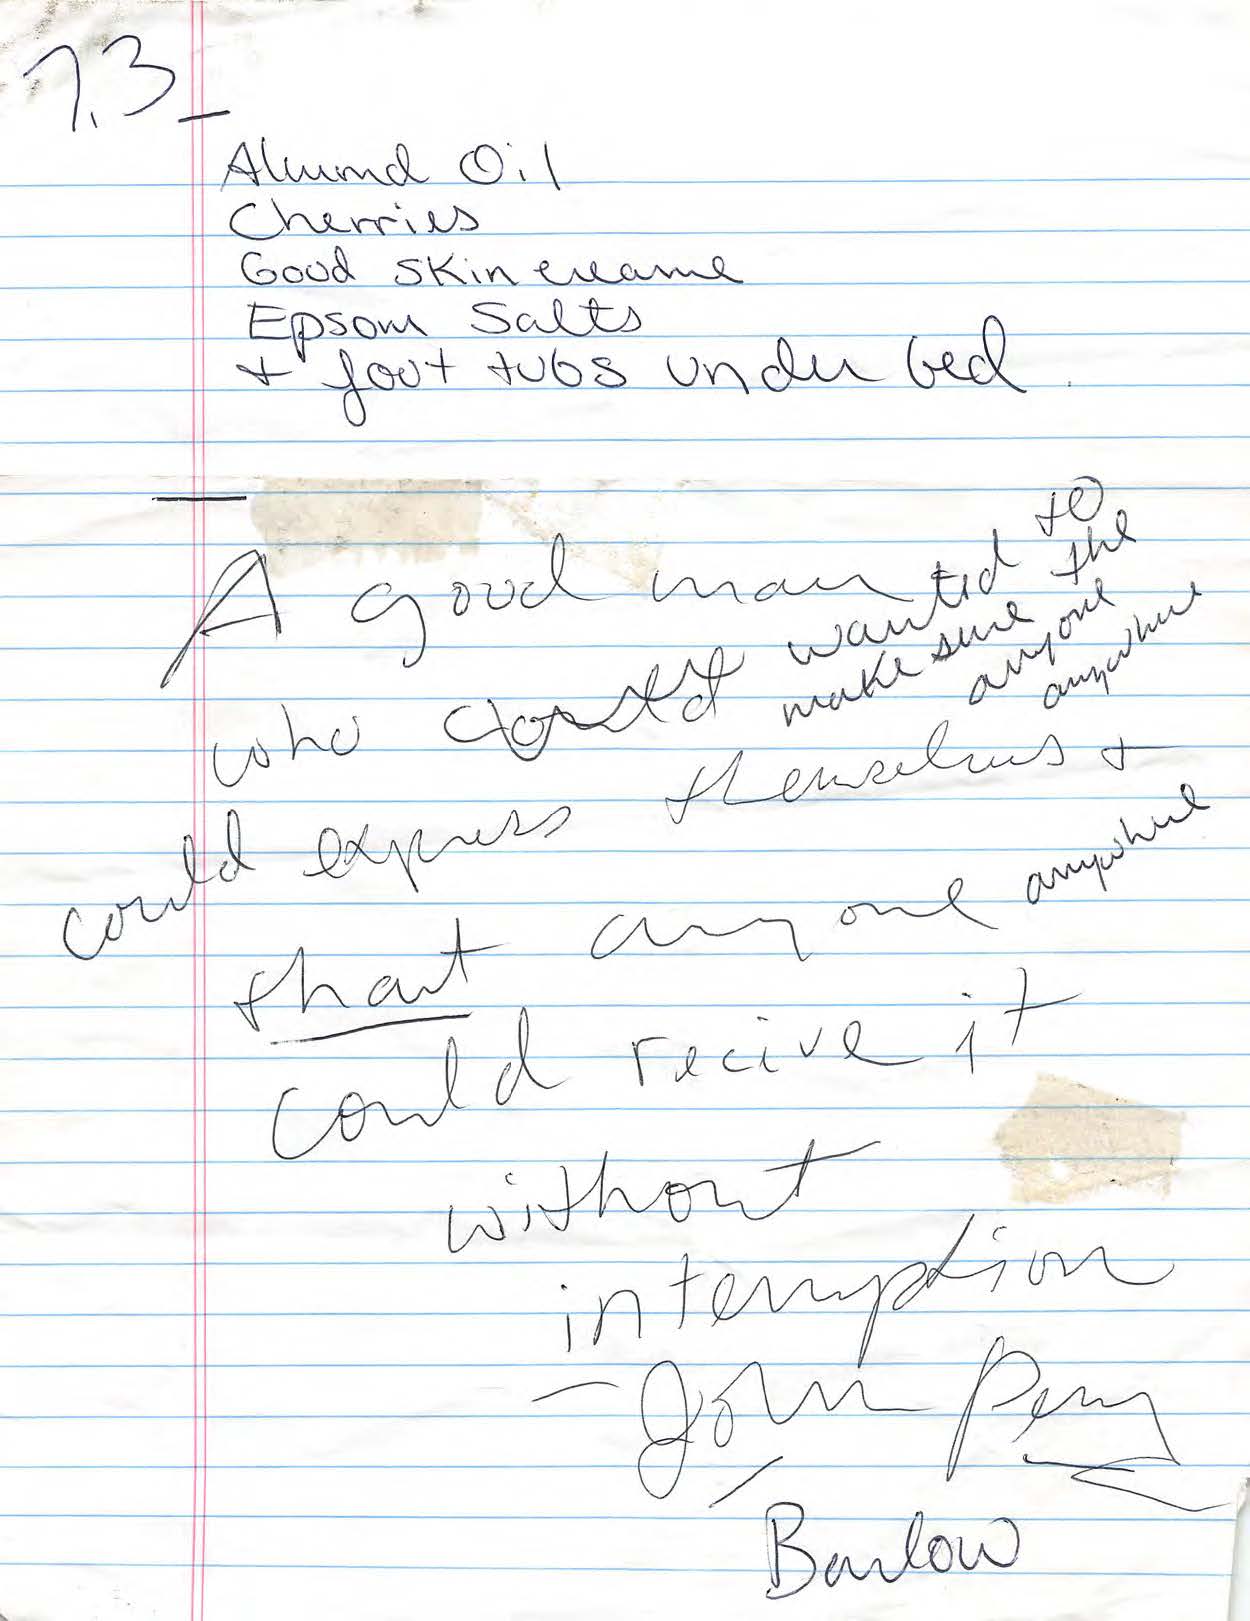 7.3
Almond Oil
Cherries
Good skin creame
Epsom Salts
+ foot tubs under bed
A good man
who wanted to
make sure the
anyone
anywhere
could express themselves +
that anyone anywhere
could recive it
without
interruption
- John Perry
Barlow